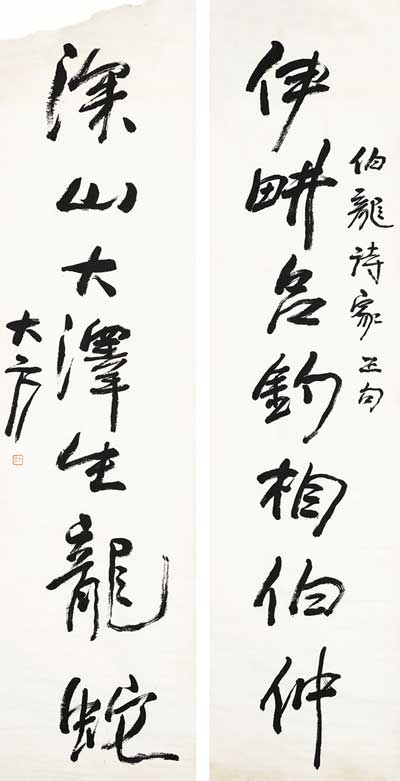 伯龍詩家正句
伊畊呂釣相伯仲
深山大澤生龍蛇
大方